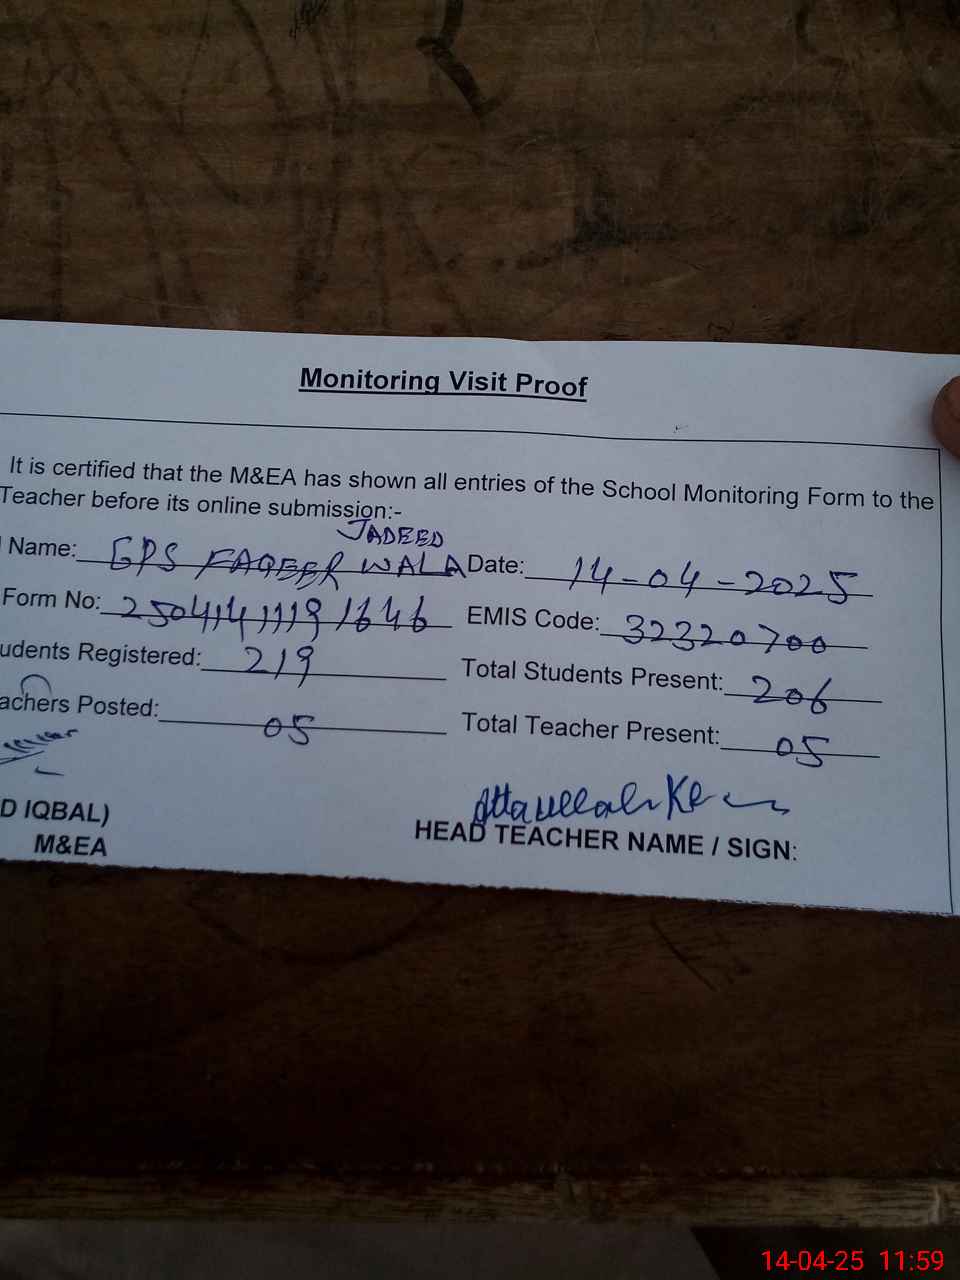 Monitoring Visit Proof
It is certified that the M&EA has shown all entries of the School Monitoring Form to the
Teacher before its online submission:-
JADEED
Name: GPS FAQEER WALA Date: 14-04-2025
Form No: 25041411191646 EMIS Code: 32320700
udents Registered: 219 Total Students Present: 206
achers Posted: 05 Total Teacher Present: 05
Attaullah Khan
D IQBAL) HEAD TEACHER NAME / SIGN:
M&EA
14-04-25 11:59